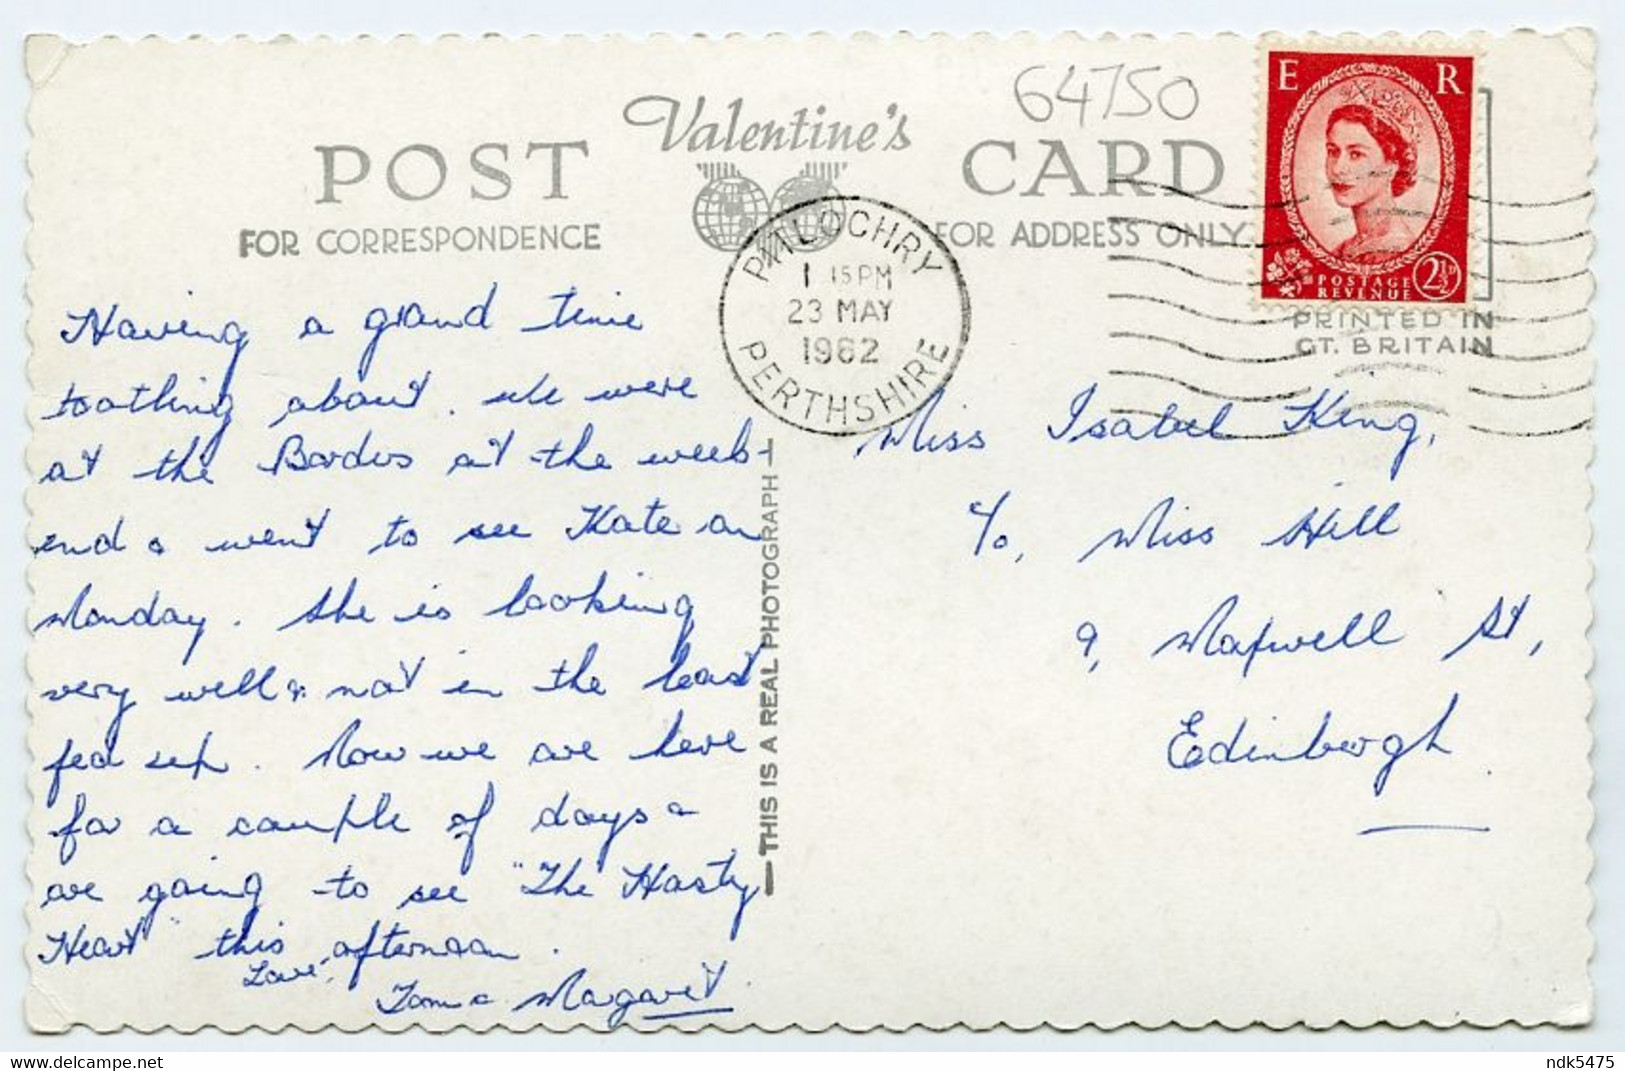 64750
POST Valentine's CARD
FOR CORRESPONDENCE
FOR ADDRESS ONLY
E R
POSTAGE
REVENUE
2½D
PRINTED IN
GT. BRITAIN
PITLOCHRY
1 15 PM
23 MAY
1962
PERTHSHIRE
Having a grand time
tootling about. We were
at the Borders at the week-
end & went to see Kate on
Monday. She is looking
very well & not in the least
fed up. Now we are here
for a couple of days &
are going to see "The Hasty
Heart" this afternoon.
Love,
Tom & Margaret.
THIS IS A REAL PHOTOGRAPH
Miss Isabel King,
c/o, Miss Hill
9, Maxwell St,
Edinburgh.
www.delcampe.net
ndk5475